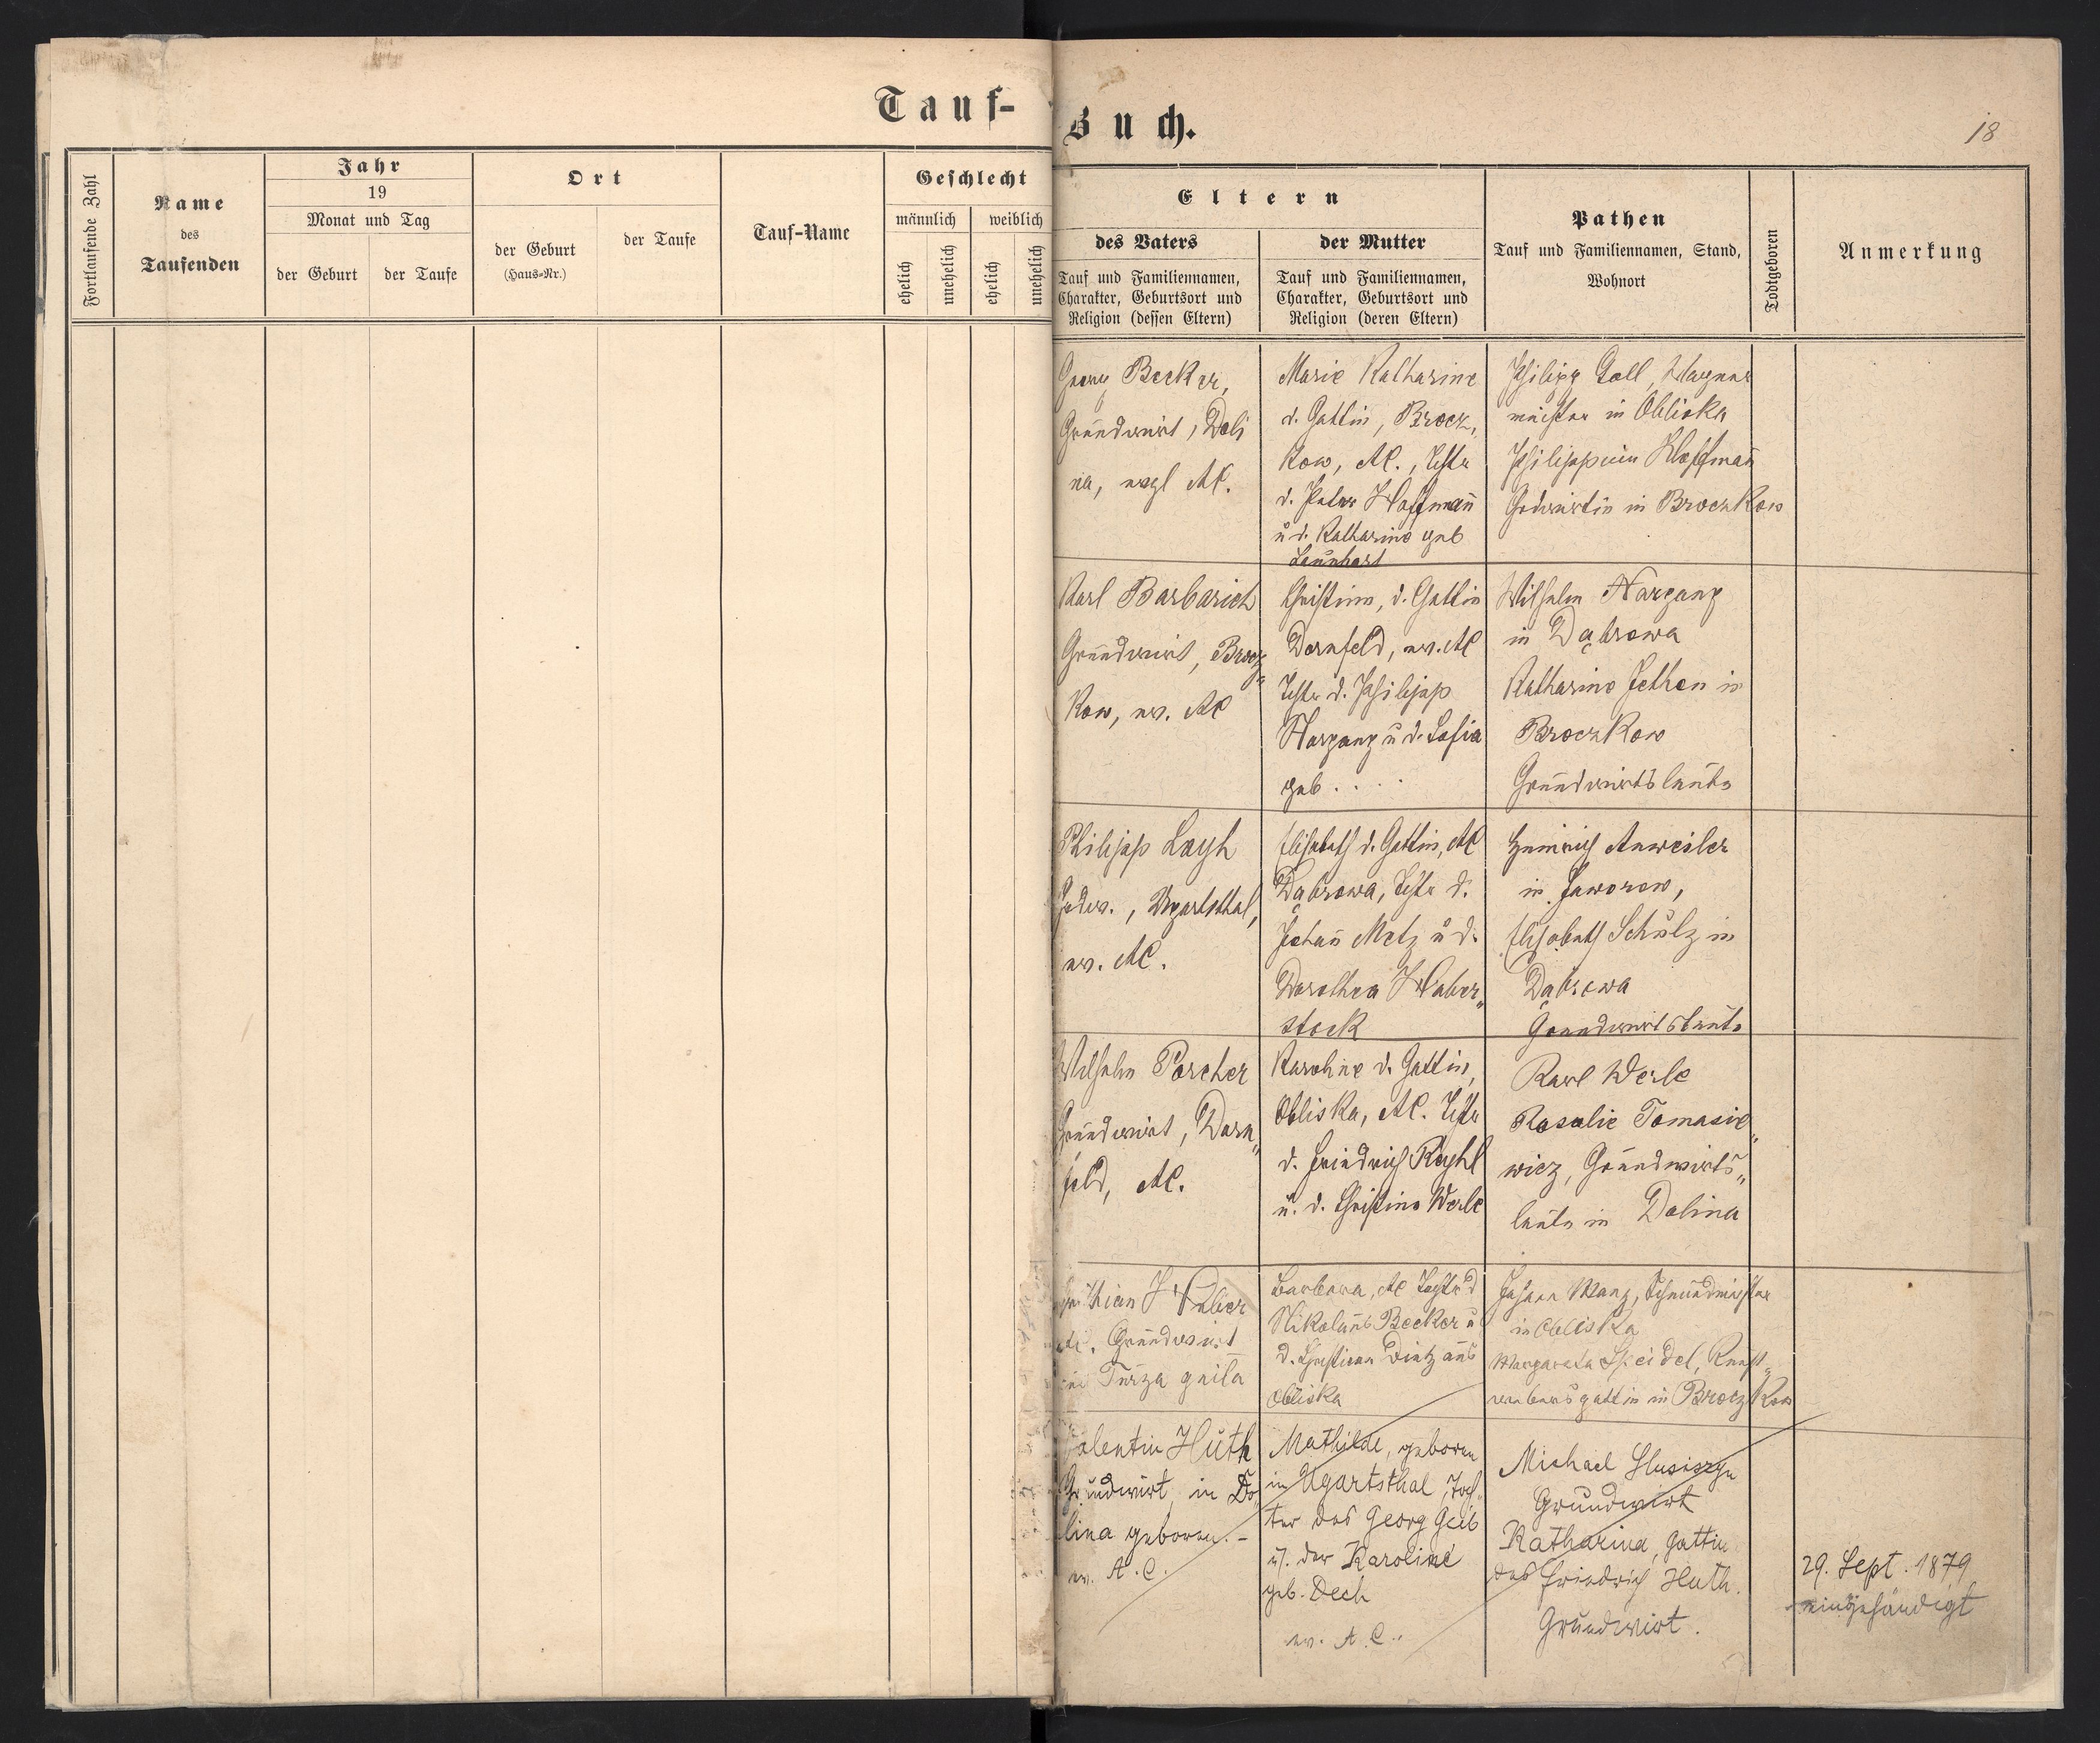 Tauf-
Buch.
18
Fortlaufende Zahl
Name
des
Taufenden
Jahr
19
Monat und Tag
der Geburt
der Taufe
Ort
der Geburt
(Haus-Nr.)
der Taufe
Tauf-Name
Geschlecht
männlich
weiblich
ehelich
unehelich
ehelich
unehelich
Eltern
des Vaters
Tauf und Familiennamen,
Charakter, Geburtsort und
Religion (dessen Eltern)
der Mutter
Tauf und Familiennamen,
Charakter, Geburtsort und
Religion (deren Eltern)
Pathen
Tauf und Familiennamen, Stand,
Wohnort
Todtgeboren
Anmerkung
Georg Becker,
Grundwirt, Doli
na, evgl AC.
Marie Katharine
d. Gattin, Brocz,
kow, AC., Tchtr
d. Peter Hoffmann
u d. Katharine geb
Launhart
Philipp Doll, Wagner
meister in Obliska
Philippine Hoffmann
Grdwirtin in Broczkow
Karl Barbarich
Grundwirt, Brocz
kow, ev. AC
Christine, d. Gattin
Dornfeld, ev. AC
Tchtr d. Philipp
Nargang u d. Sofia
geb . . . .
Wilhelm Nargang
in Dąbrowa
Katharine Jethon in
Broczkow
Grundwirtsleute
Philipp Layh
Grdw., Ugartsthal,
ev. AC.
Elisabeth d. Gattin, AC
Dąbrowa, Tchtr d.
Johann Metz u d.
Dorothea Haber
stock
Heinrich Anweiler
in Jaworow,
Elisabeth Schulz in
Dąbrowa
Grundwirtsleute
Wilhelm Porcher
Grundwirt, Dorn
feld, AC.
Karoline d. Gattin,
Obliska, AC. Tchtr
d. Friedrich Reyhl
u. d. Christine Werle
Karl Werle
Rosalie Tomasie
wicz, Grundwirts
leute in Dolina
Huber
AC. Grundwirt
in Turza gniła
Barbara, AC Tochtr d
Nikolaus Becker u
d. Christiana Dintz aus
Obliska
Johann Manz, Schmiedmeister
in Obliska
Margareta Speidel, Kunst
webersgattin in Broczkow
Valentin Huth
Grundwirt in Do
lina geboren. -
ev. A.C.
Mathilde, geboren
in Ugartsthal, Toch
ter des Georg Geib
u. der Karoline
geb. Dech
ev. A.C.
Michael
Grundwirt
Katharina, Gattin
des Friedrich Huth.
Grundwirt.
29. Sept. 1879
eingehändigt